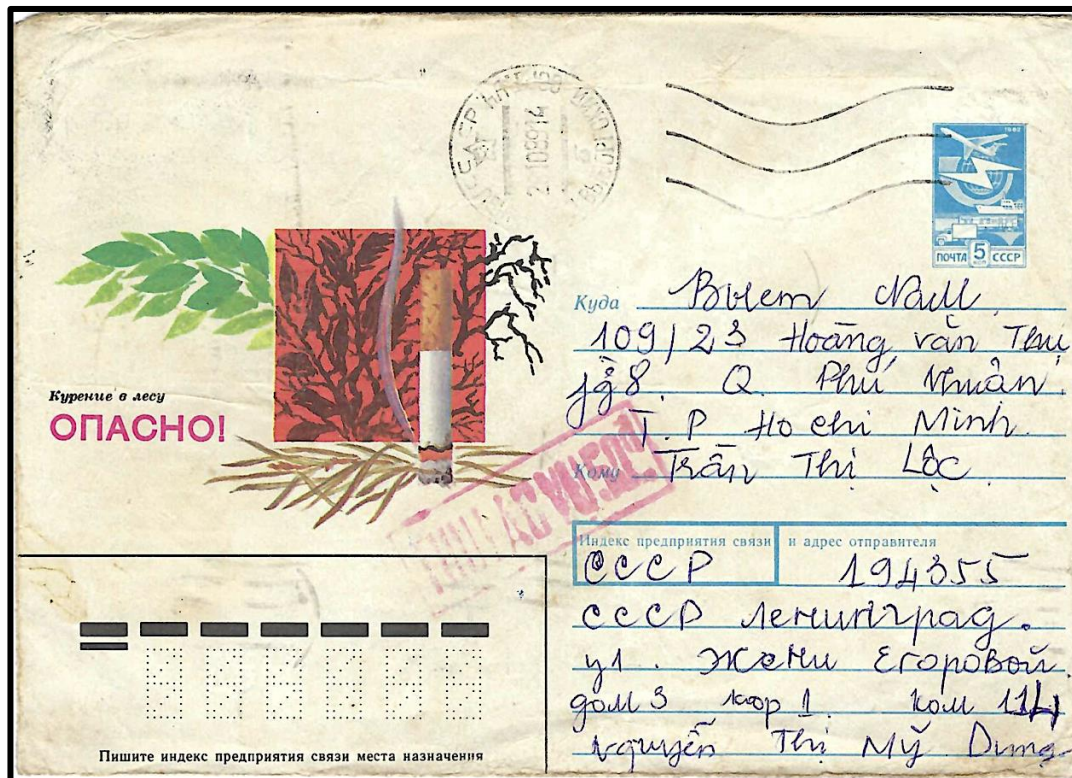 1982
ПОЧТА 5 СССР
Курение в лесу
ОПАСНО!
Куда Вьет Нам
109/23 Hoàng văn Thụ
Q. Phú Nhuận
T.P Ho chi Minh
Кому Trần Thị Lộc
Индекс предприятия связи и адрес отправителя
СССР 194355
СССР Ленинград.
ул. Жени Егоровой
дом 3 кор 1. ком 114
Nguyễn Thị Mỹ Dung
Пишите индекс предприятия связи места назначения